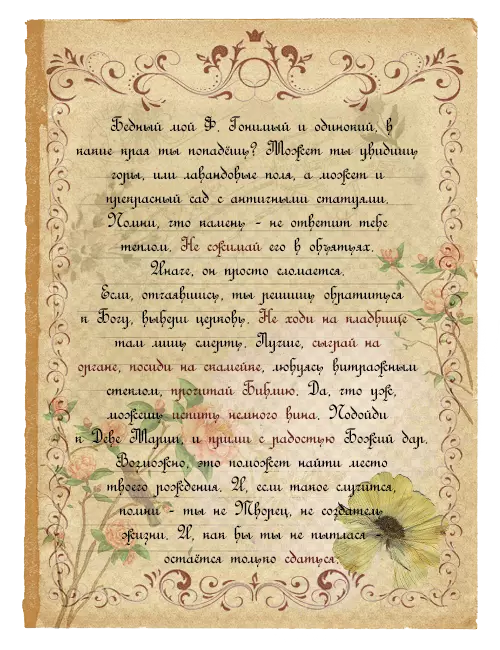 Бедный мой Ф. Гонимый и одинокий, в
какие края ты попадёшь? Может ты увидишь
горы, или лавандовые поля, а может и
прекрасный сад с античными статуями.
Помни, что камень - не ответит тебе
теплом. Не сжимай его в объятьях.
Иначе, он просто сломается.
Если, отчаявшись, ты решишь обратиться
к Богу, выбери церковь. Не ходи на кладбище
там лишь смерть. Лучше, сыграй на
органе, посиди на скамейке, любуясь витражным
стеклом, прочитай Библию. Да, что уж,
можешь испить немного вина. Подойди
к Деве Марии, и прими с радостью Божий дар.
Возможно, это поможет найти место
твоего рождения. И, если такое случится,
помни - ты не Творец, не создатель
жизни. И, как бы ты не пытлася -
остаётся только сдаться.